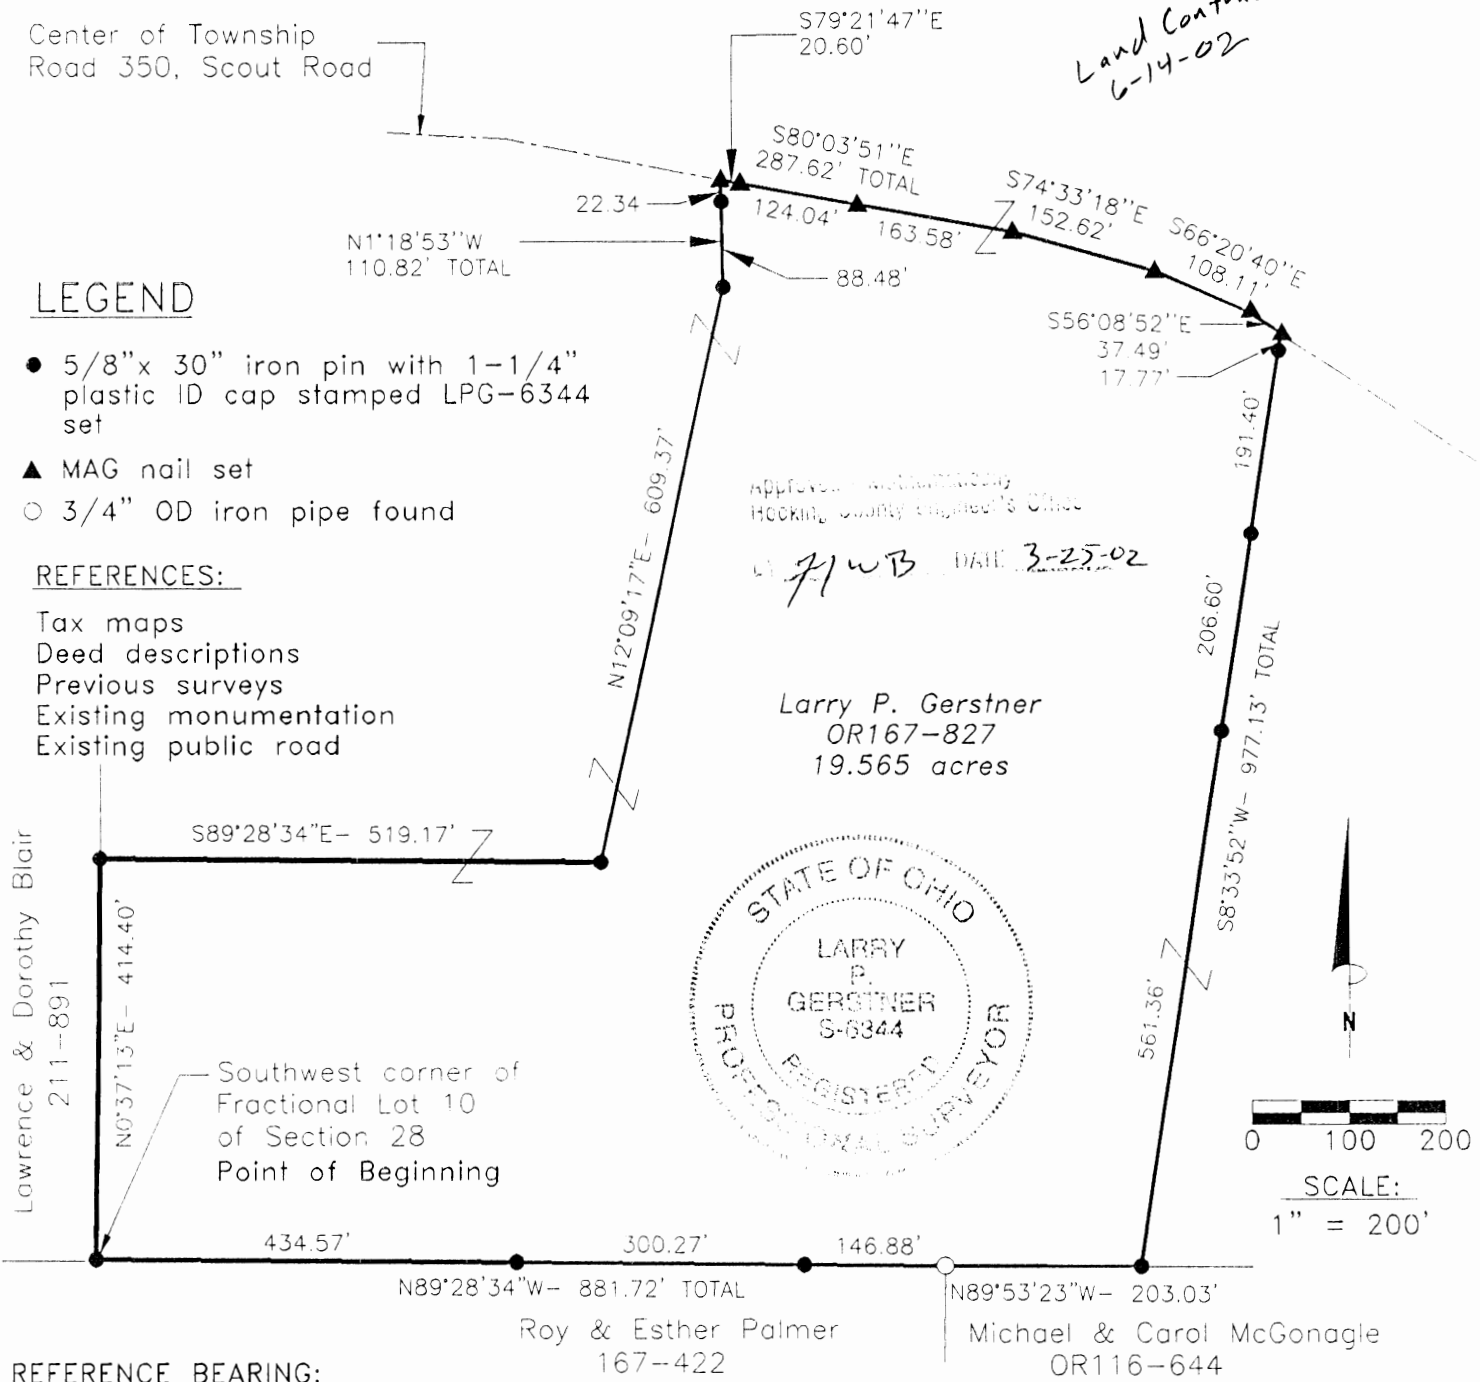 Center of Township
Road 350, Scout Road
S79°21'47"E
20.60'
Land
6-14-02
S80°03'51"E
287.62' TOTAL
124.04'
163.58'
S74°33'18"E
152.62'
S66°20'40"E
108.11'
22.34
N1°18'53"W
110.82' TOTAL
88.48'
S56°08'52"E
37.49'
17.77'
LEGEND
5/8"x 30" iron pin with 1-1/4"
plastic ID cap stamped LPG-6344
set
MAG nail set
3/4" OD iron pipe found
REFERENCES:
Tax maps
Deed descriptions
Previous surveys
Existing monumentation
Existing public road
N12°09'17"E- 609.37'
191.40'
Approved Mathematically
Hocking County Engineer's Office
DATE 3-25-02
206.60'
S8°33'52"W- 977.13' TOTAL
Larry P. Gerstner
OR167-827
19.565 acres
S89°28'34"E- 519.17'
Lawrence & Dorothy Blair
211-891
N0°37'13"E- 414.40'
STATE OF OHIO
LARRY
P.
GERSTNER
S-6344
REGISTERED
PROFESSIONAL SURVEYOR
561.36'
N
Southwest corner of
Fractional Lot 10
of Section 28
Point of Beginning
0 100 200
SCALE:
1" = 200'
434.57'
300.27'
146.88'
N89°28'34"W- 881.72' TOTAL
N89°53'23"W- 203.03'
Roy & Esther Palmer
167-422
Michael & Carol McGonagle
OR116-644
REFERENCE BEARING: